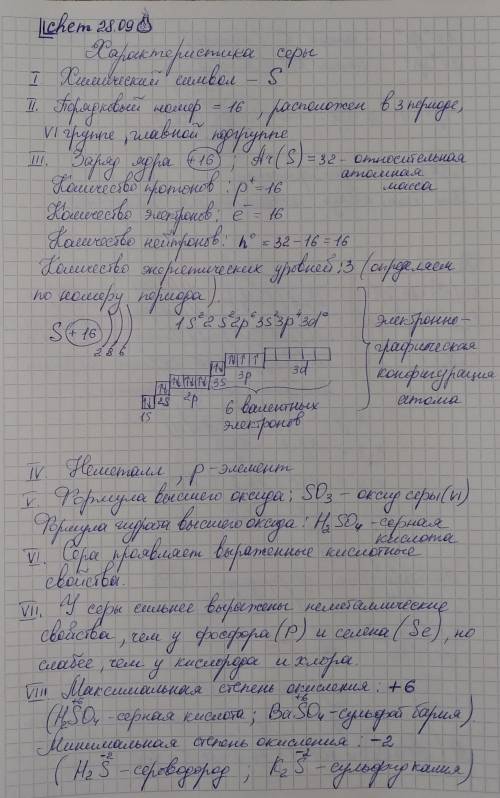 свет 28.09
Характеристика серы
I Химический символ - S
II. Порядковый номер = 16, расположен в 3 периоде,
VI группе, главной подгруппе
III. Заряд ядра +16; Ar(S) = 32 - относительная
атомная
масса
Количество протонов: p⁺ = 16
Количество электронов: e⁻ = 16
Количество нейтронов: n⁰ = 32 - 16 = 16
Количество энергетических уровней: 3 (определяем
по номеру периода).
S +16 ) ) )
2 8 6
1s² 2s² 2p⁶ 3s² 3p⁴ 3d⁰
электронно-
графическая
конфигурация
атома
1s 2s 2p 3s 3p 3d
6 валентных
электронов
IV. Неметалл, p-элемент
V. Формула высшего оксида: SO₃ - оксид серы (VI)
Формула гидрата высшего оксида: H₂SO₄ - серная
кислота
VI. Сера проявляет выраженные кислотные
свойства.
VII. У серы сильнее вырыжены неметаллические
свойства, чем у фосфора (P) и селена (Se), но
слабее, чем у кислорода и хлора.
VIII. Максимальная степень окисления: +6
(H₂S⁺⁶O₄ - серная кислота; BaS⁺⁶O₄ - сульфат бария).
Минимальная степень окисления: -2
(H₂S⁻² - сероводород; K₂S⁻² - сульфид калия)